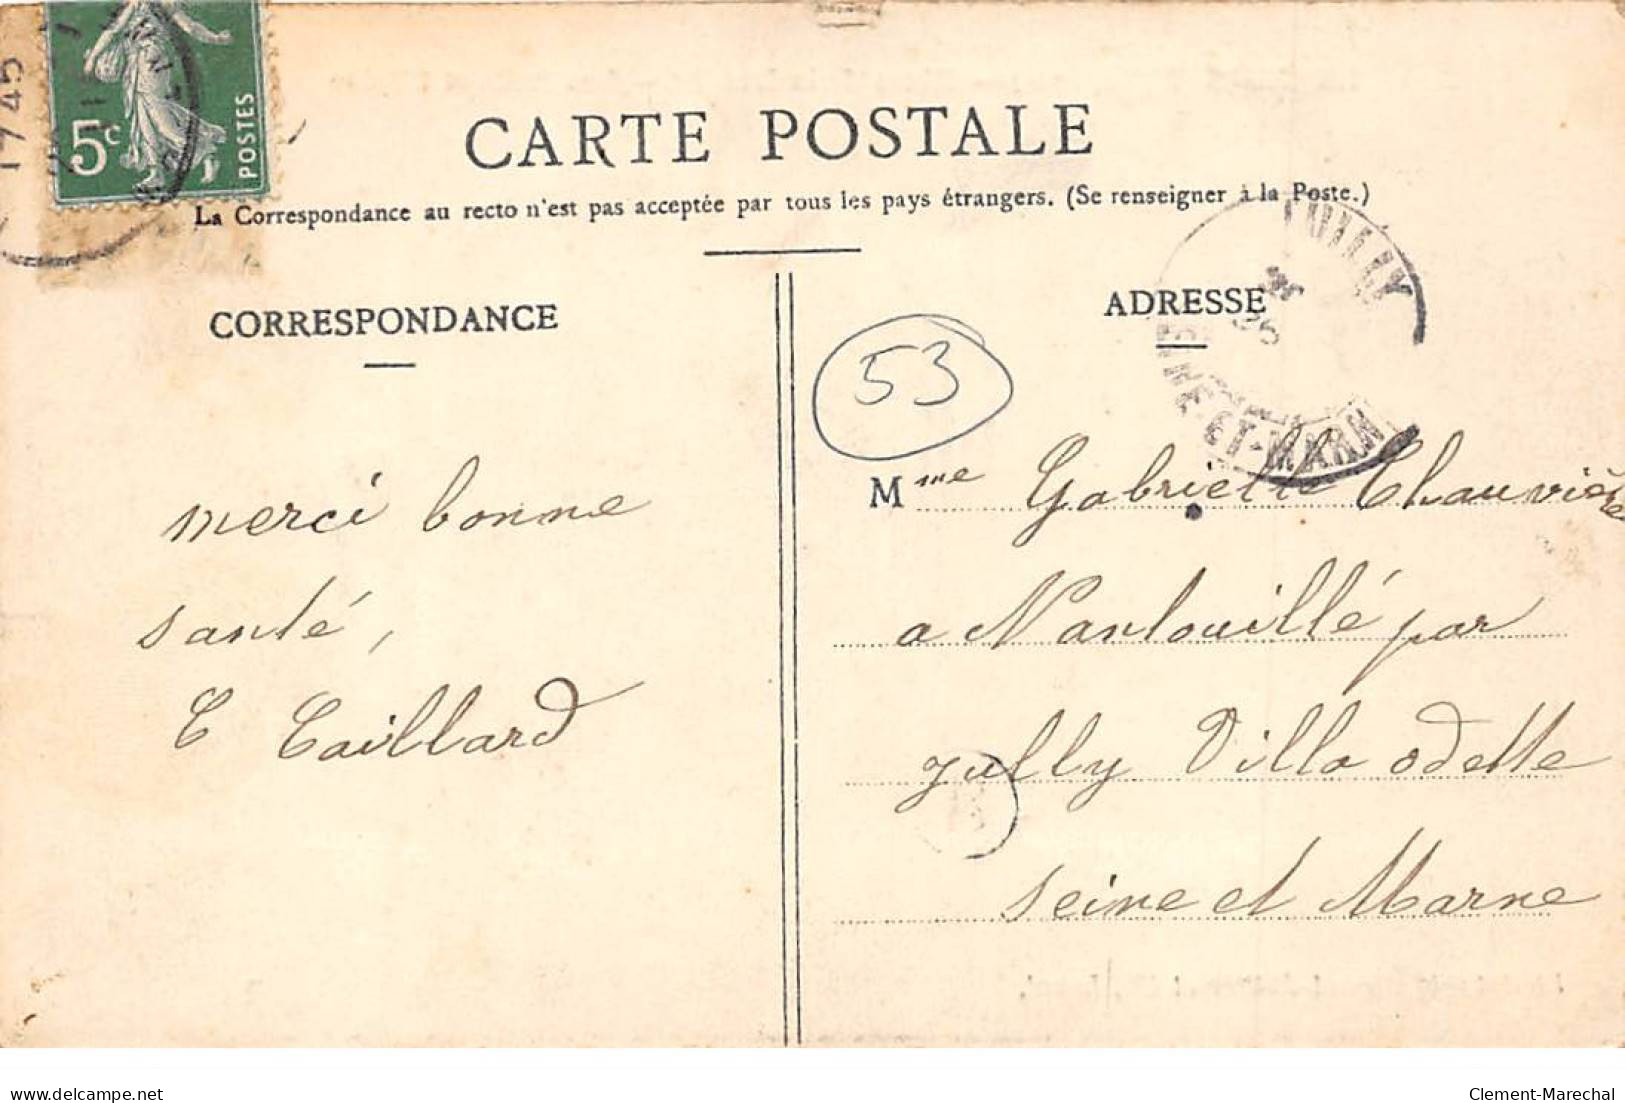 17 45
5c
POSTES
CARTE POSTALE
La Correspondance au recto n'est pas acceptée par tous les pays étrangers. (Se renseigner à la Poste.)
CORRESPONDANCE
ADRESSE
JUILLY
SEINE-ET-MARNE
53
merci bonne
santé,
E Taillard
Mme Gabrielle Chauvière
a Nantouillé par
Jully Villa Odette
Seine et Marne
delcampe.net
Clement-Marechal